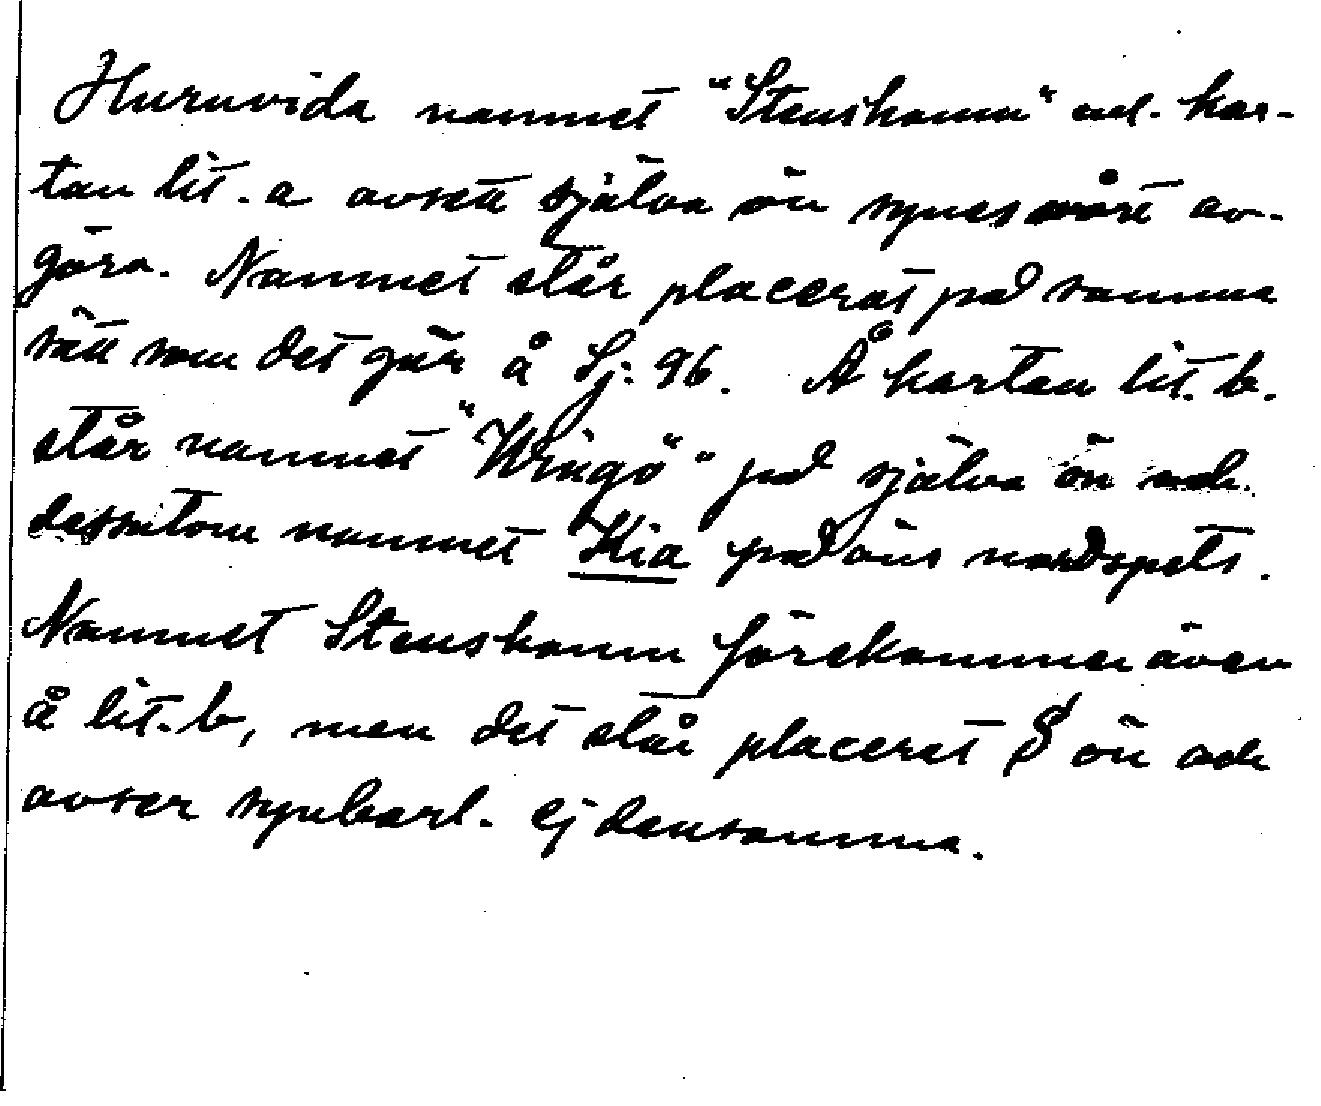 Huruvida namnet "Stenshamn" enl. kar-
tan lit. a avsett själva ön synes svårt av-
göra. Namnet står placerat på samma
sätt som det gör å Sj. 96. Å kartan lit. b.
står namnet "Wingö" på själva ön och
dessutom namnet Kia på öns nordspets.
Namnet Stenshamn förekommer även
å lit. b, men det står placerat S ön och
avser synbarl. ej densamma.